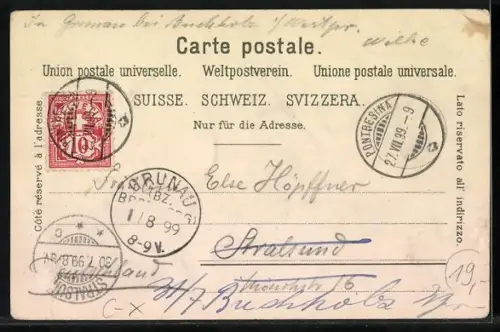 In Grunau bei Buchholz i/Westpr.
Wilke
Carte postale.
Union postale universelle. Weltpostverein. Unione postale universale.
SUISSE. SCHWEIZ. SVIZZERA.
Nur für die Adresse.
Côté réservé à l'adresse.
Lato riservato all' indirizzo.
10
PONTRESINA
27.VII.99.-9
Else Höpffner
GRUNAU
1/8 99
8-9V.
Stralsund
Deutschland
STRALSUND
30.7.99.8-9V.
16
C-X W/7 Buchholz Wpr
19,-